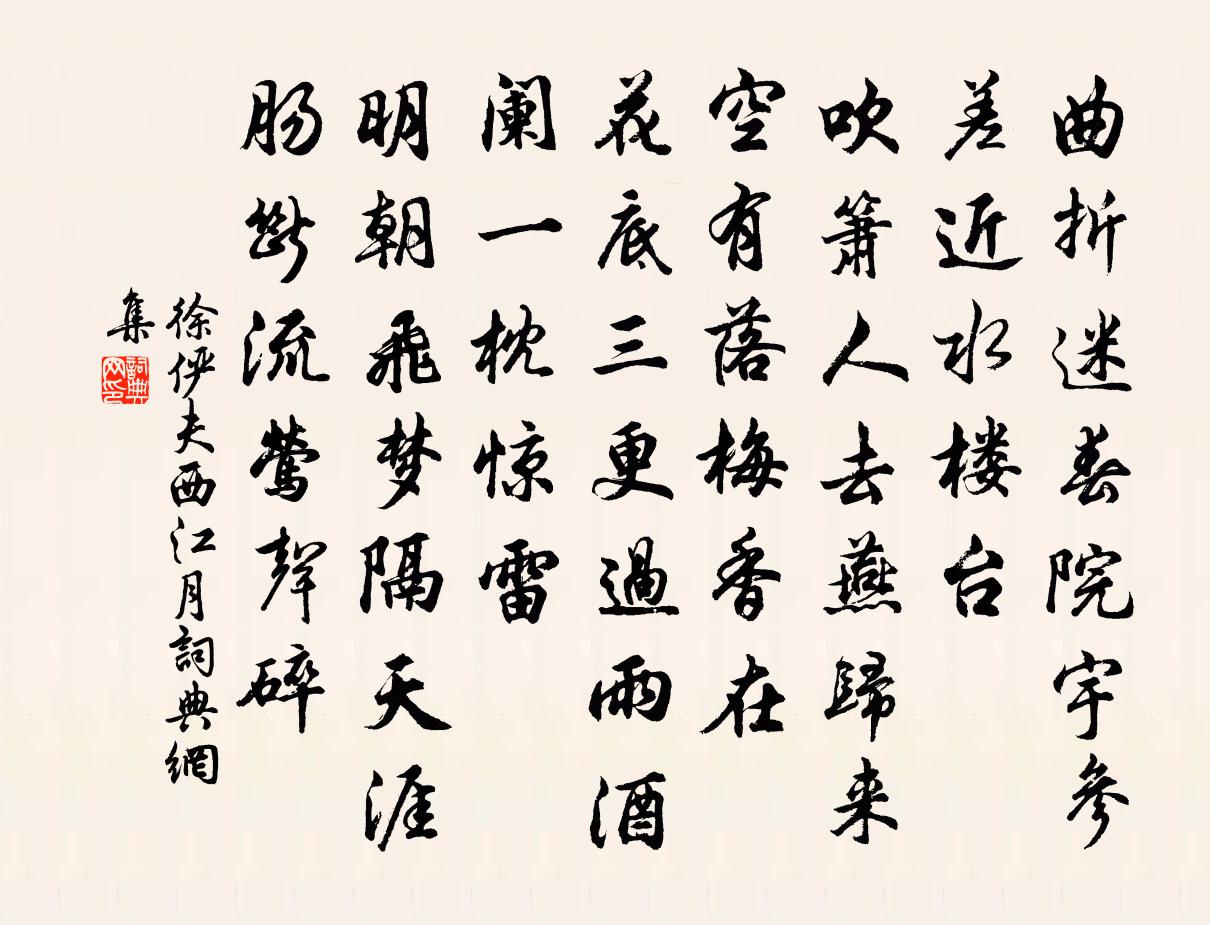 曲折迷春院宇參
差近水楼台
吹箫人去燕歸来
空有落梅香在
花底三更過雨酒
阑一枕惊雷
明朝飛梦隔天涯
肠斷流莺聲碎
徐俨夫西江月詞典網
集
詞典
网印